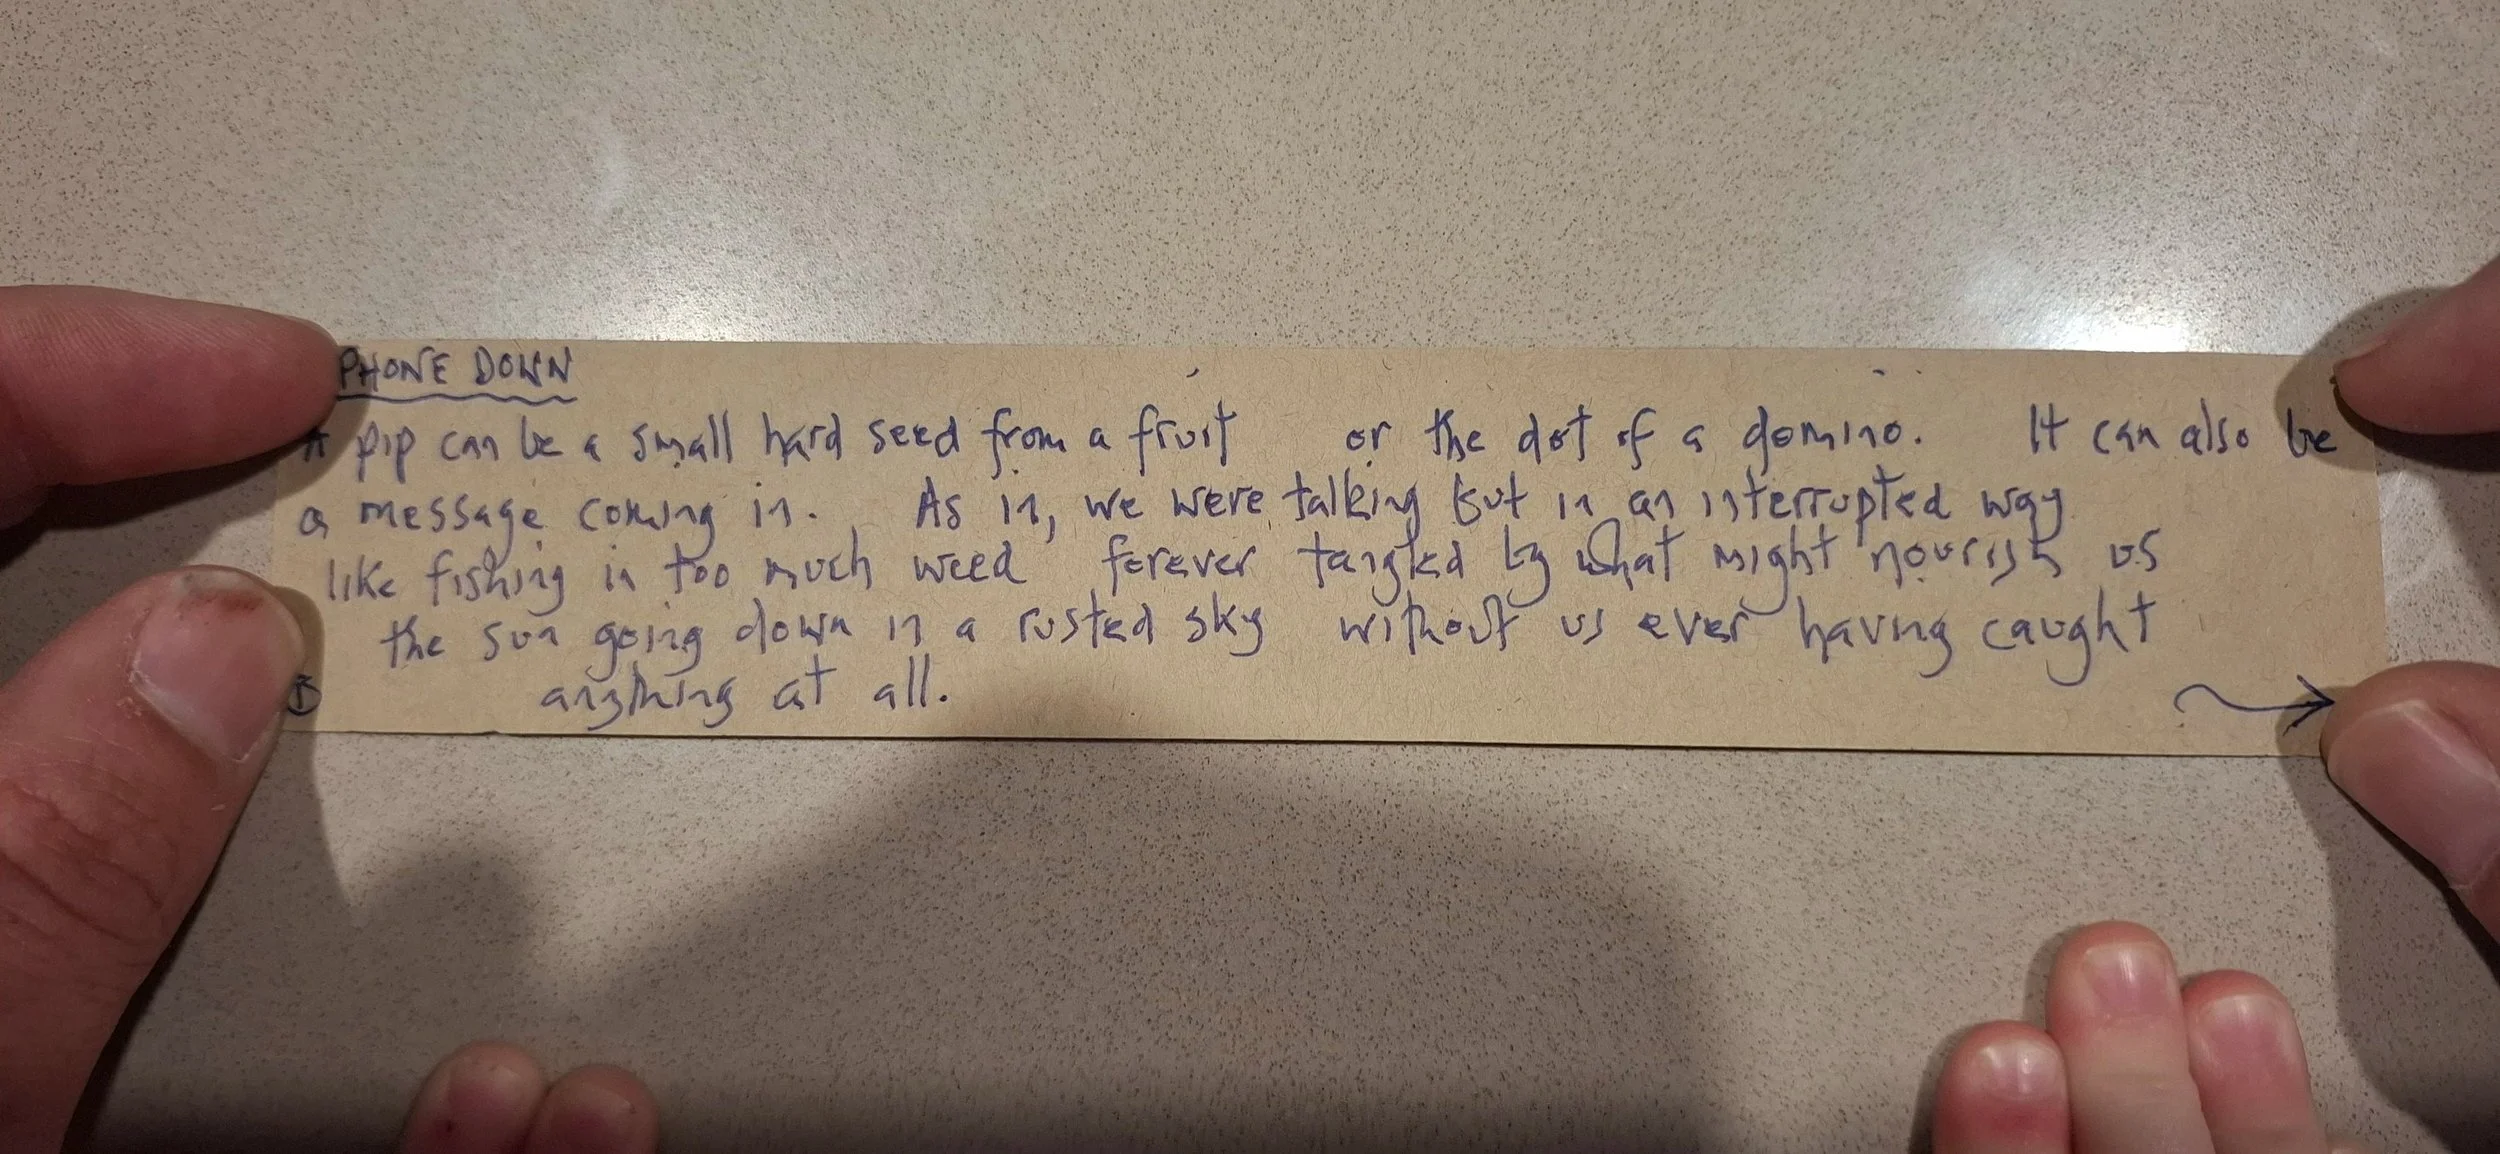 PHONE DOWN
A pip can be a small hard seed from a fruit or the dot of a domino. It can also be
a message coming in. As in, we were talking but in an interrupted way
like fishing in too much weed forever tangled by what might nourish us
the sun going down in a rusted sky without us ever having caught
anything at all.